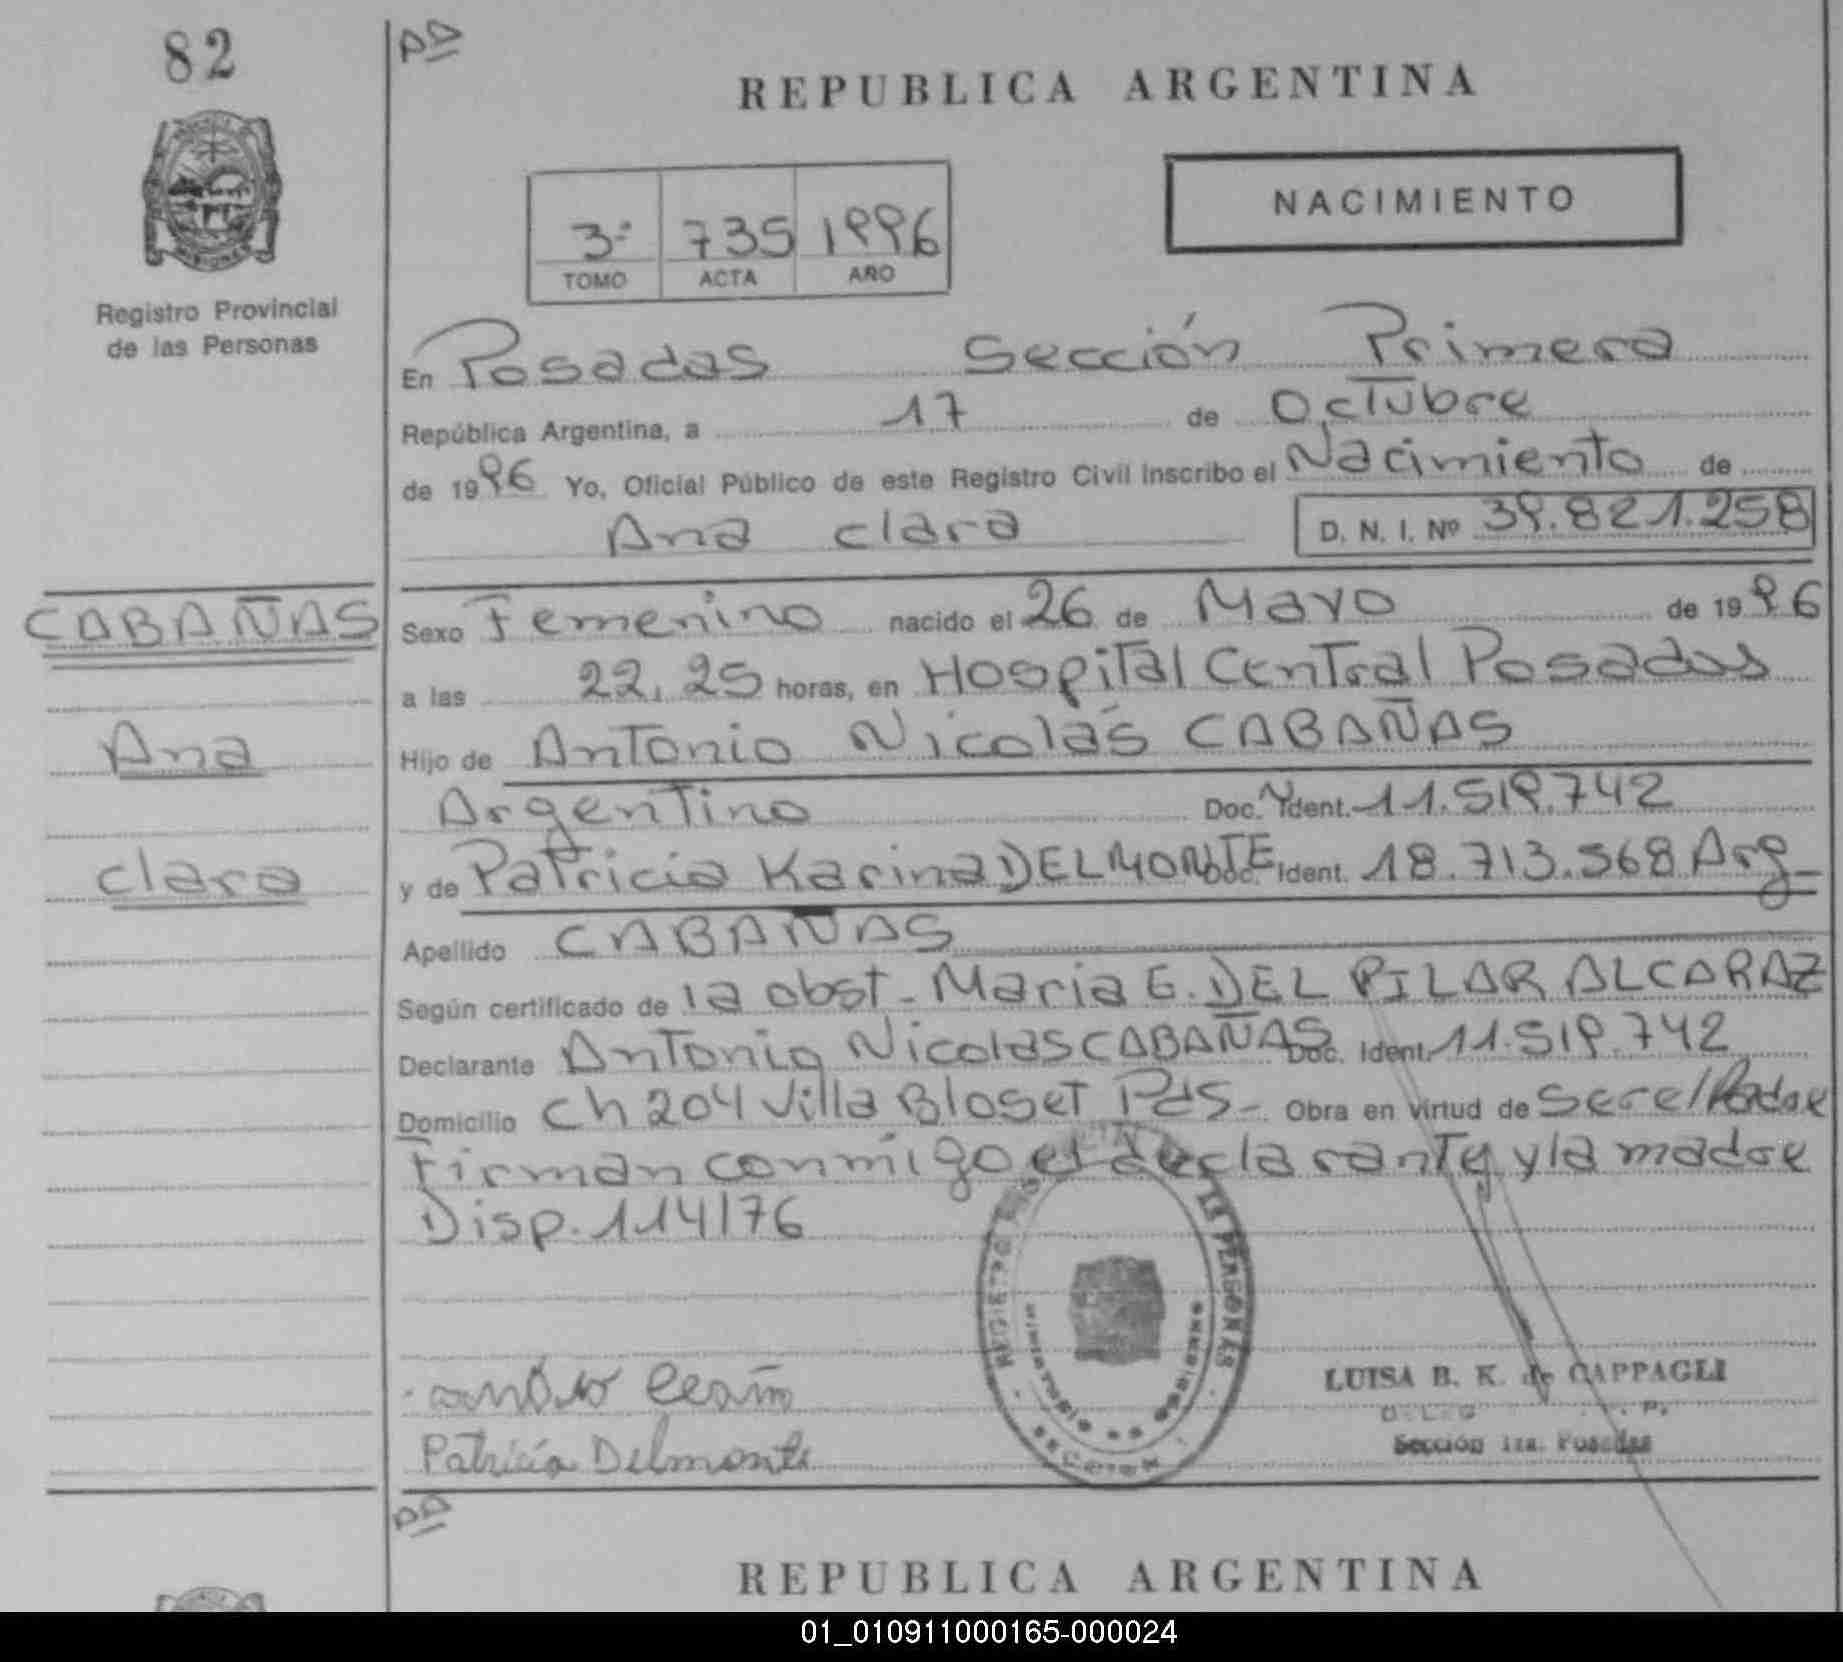 82
PD
REPUBLICA ARGENTINA
NACIMIENTO
3º 735 1996
TOMO ACTA AÑO
Registro Provincial
de las Personas
En Posadas Sección Primera
República Argentina, a 17 de Octubre
de 1996 Yo, Oficial Público de este Registro Civil inscribo el Nacimiento de
Ana Clara D. N. I. Nº 39.821.258
CABAÑAS
Ana
Clara
Sexo Femenino nacido el 26 de Mayo de 1996
a las 22,25 horas, en Hospital Central Posadas
Hijo de Antonio Nicolás CABAÑAS
Argentino Doc. Ident. 11.519.742
y de Patricia Karina DELMONTE Doc. Ident. 18.713.568 Arg_
Apellido CABAÑAS
Según certificado de la obst_ Maria E. DEL PILAR ALCARAZ
Declarante Antonio Nicolas CABAÑAS Doc. Ident. 11.519.742
Domicilio Ch 204 Villa Bloset Pds_ Obra en virtud de ser el Padre
Firman conmigo el declarante y la madre
Disp. 114/76
Patricia Delmonte
REGISTRO DE LAS PERSONAS
SECCION
LUISA B. K. de CAPPAGLI
Sección 1ra. Posadas
PD
REPUBLICA ARGENTINA
01_010911000165-000024